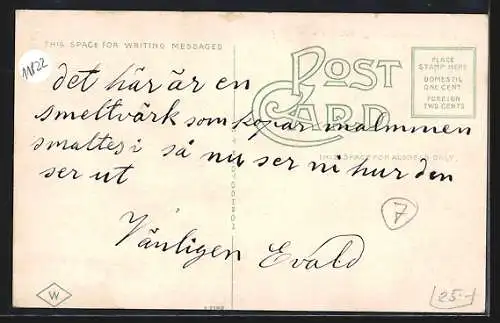 THIS SPACE FOR WRITING MESSAGES
11822
POST
CARD
PLACE
STAMP HERE
DOMESTIC
ONE CENT
FOREIGN
TWO CENTS
THIS SPACE FOR ADDRESS ONLY.
det här är en
smeltvärk som kopar malmmen
smaltes i så nu ser ni hur den
ser ut
Vänligen Evald
7
W
25.-